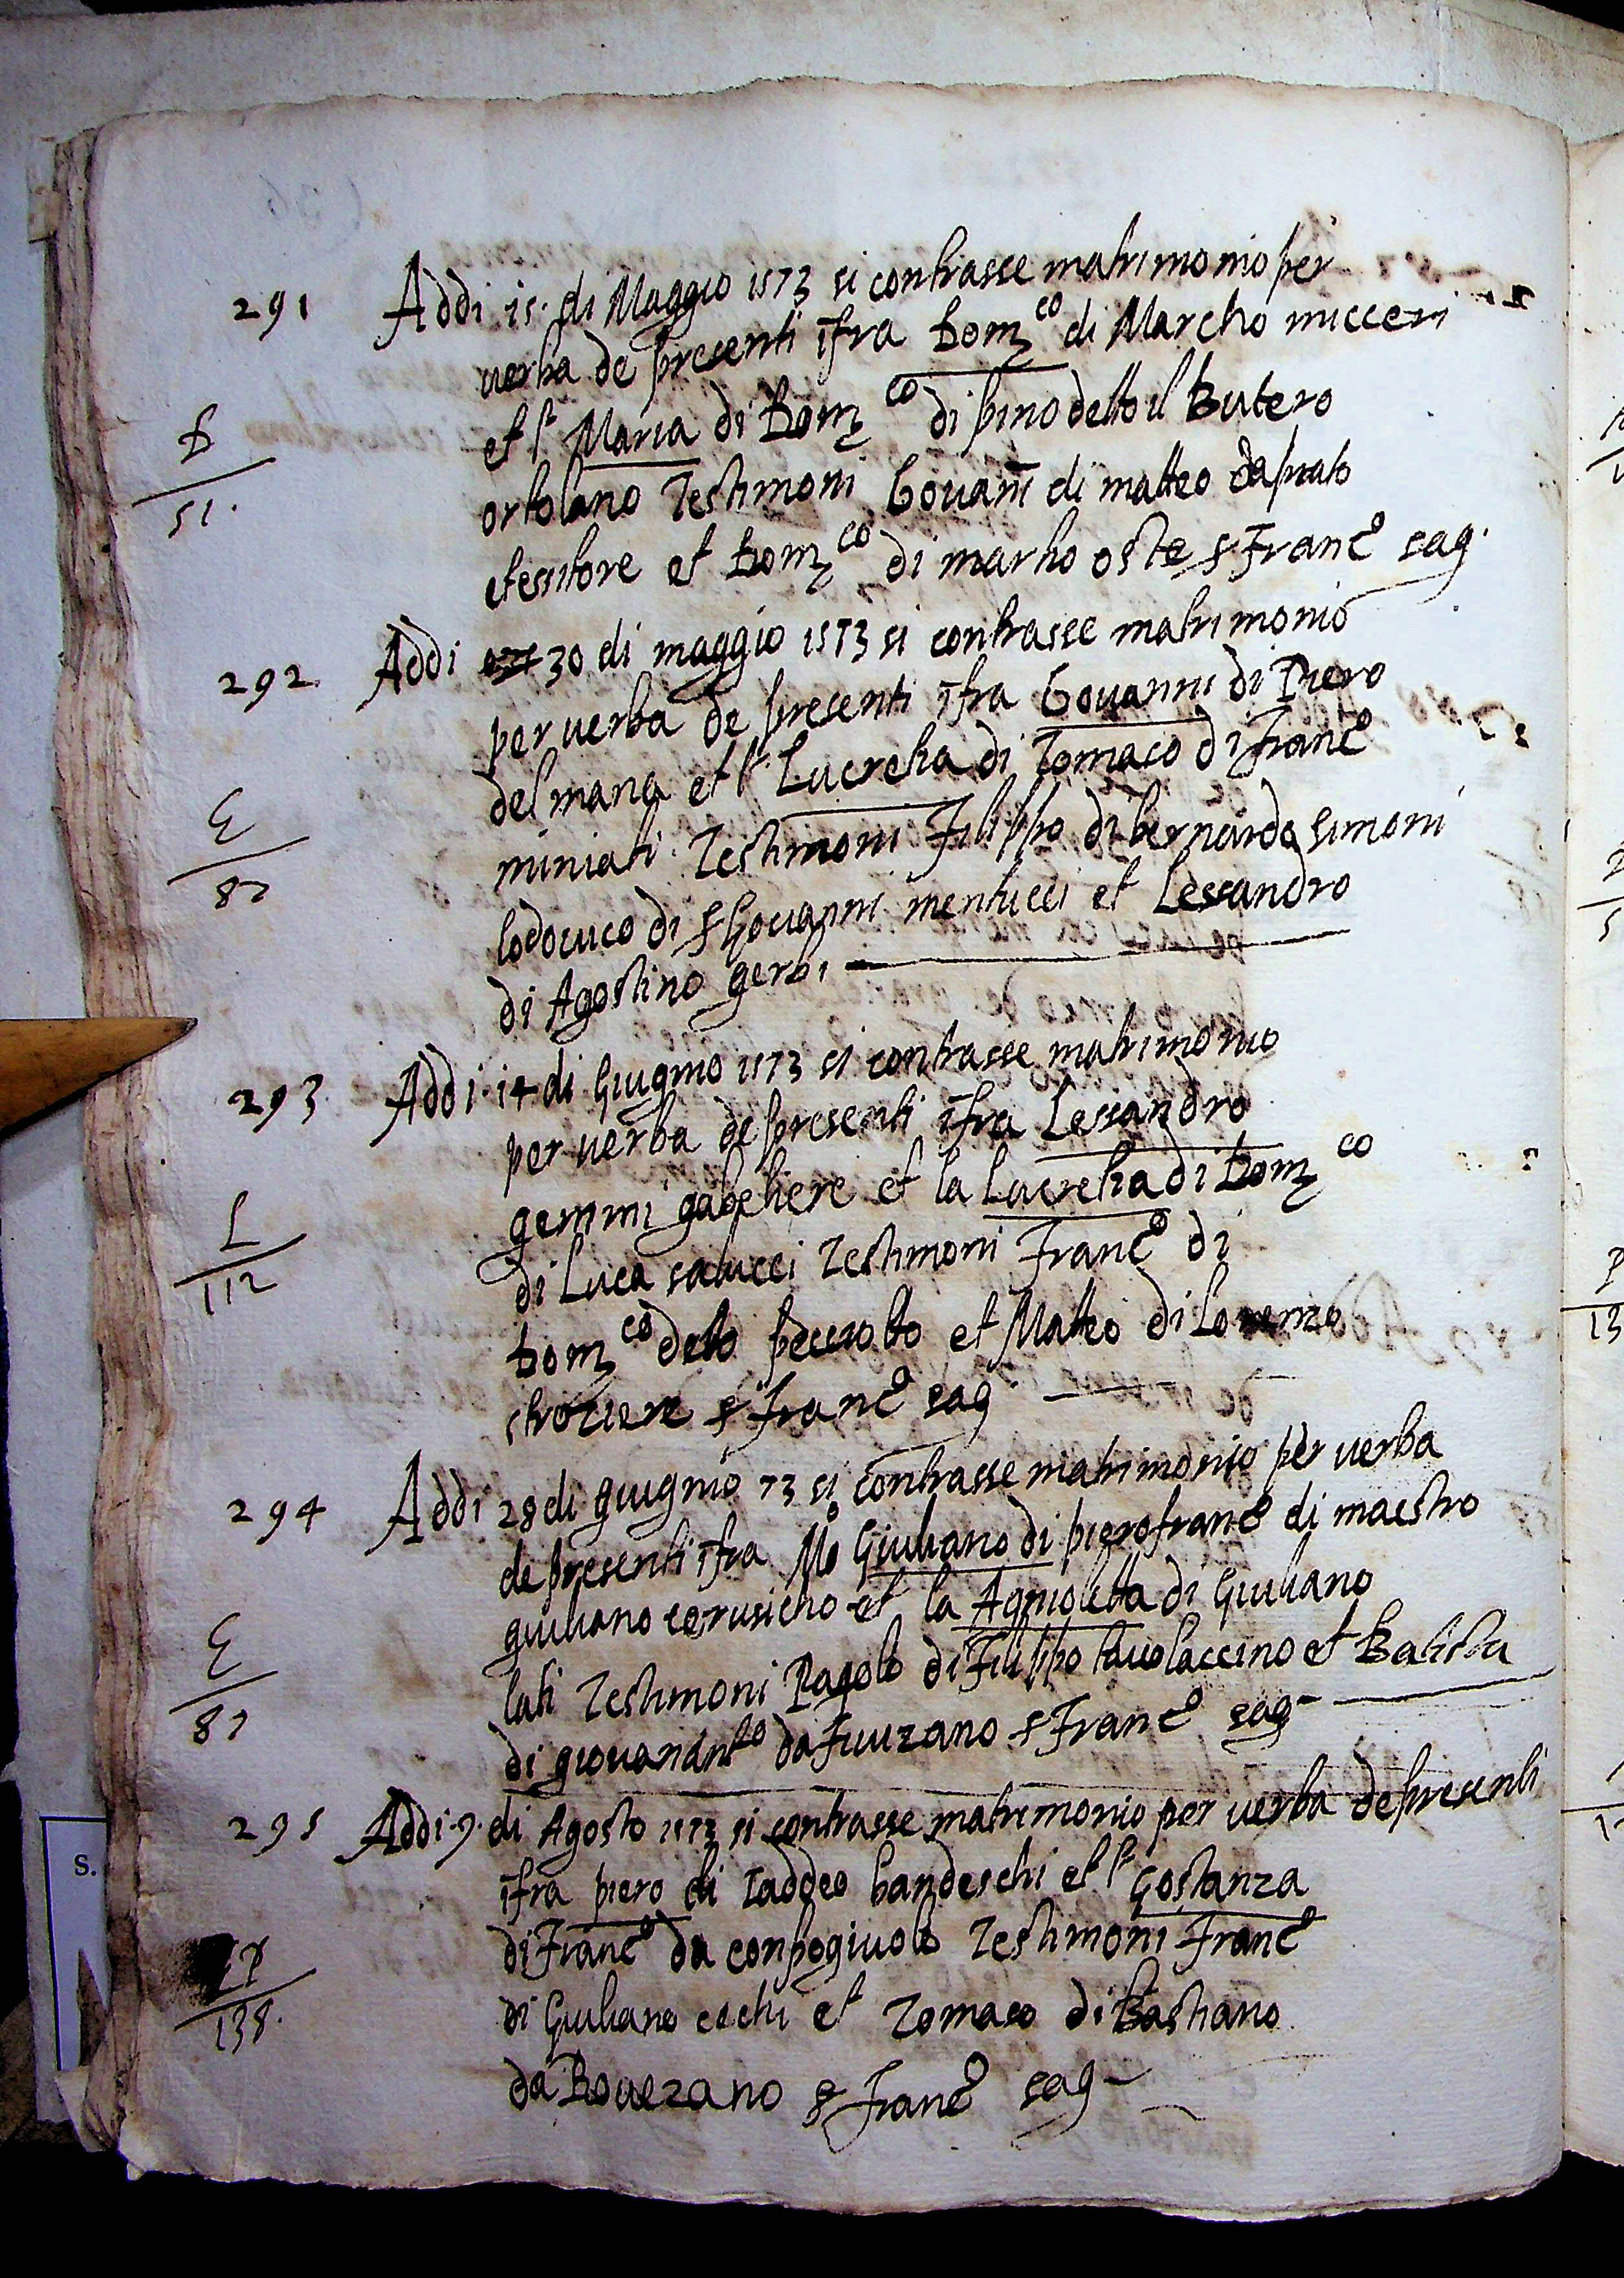 291 Addi 15 di Maggio 1573 si contrasse matrimonio per
verba de presenti ifra Dom.co di Marcho micceri
et l.a Maria di Dom.co di pino detto il Butero
D
51.
ortolano Testimoni Govani di matteo da prato
tessitore et Dom.co di marho oste s Franc.o sag.
292 Addi 30 di maggio 1573 si contrasse matrimonio
per verba de presenti ifra Govanni di Piero
del mana et l.a Lucretia di Tomaco di Franc.o
G
87
miniati. Testimoni Filippo di bernardo simoni
lodovico di s Govanni mentucci et Lessandro
di Agostino gerbi
293 Addi 14 di Giugnio 1573 si contrasse matrimonio
per verba de presenti ifra Lessandro
gemmi gabelliere et la Lucretia di Dom.co
L
112
di Luca salucci Testimoni Franc.o di
Dom.co detto et Matteo di Lorenzo
s Franc.o sag
294 Addi 28 di giugnio 73 si contrasse matrimonio per verba
de presenti ifra M.o Giuliano di pierofranc.o di maestro
giuliano cerusicho et la Agnioletta di Giuliano
G
87
lati Testimoni Pagolo di Filippo tavolaccino et Batista
di giovan da s Franc.o sag
295 Addi 9. di Agosto 1573 si contrasse matrimonio per verba de presenti
ifra piero di Taddeo bandeschi et l.a Gostanza
di Franc.o da conpogiuolo Testimoni Franc.o
P
138.
di Giuliano cechi et Tomaco di Bastiano
da Rovezano s Franc.o sag